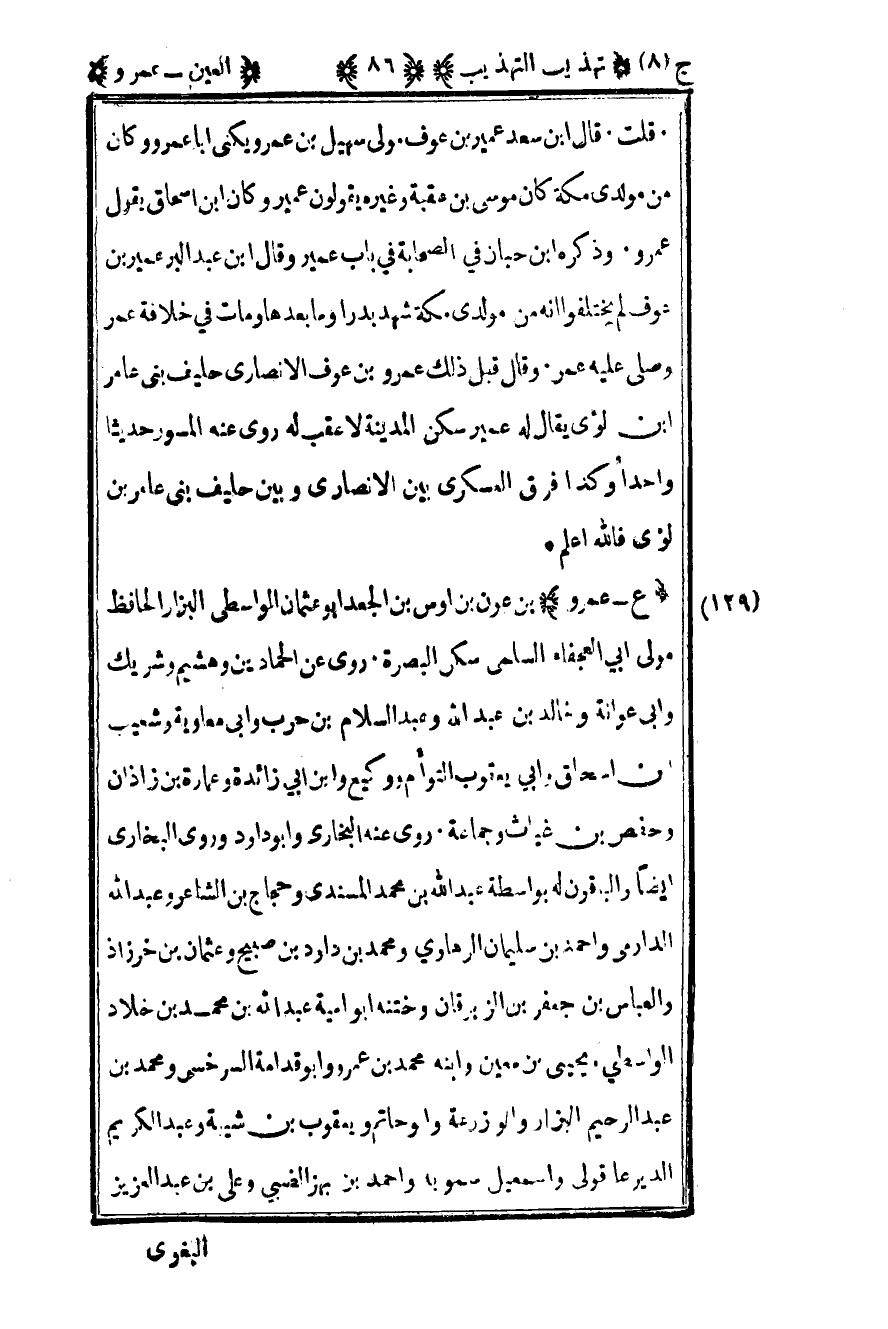 ج (٨) ﴿ تهذيب التهذيب ﴾ ﴿ ٨٦ ﴾ ﴿ العين ـ عمرو ﴾
٠ قلت ٠ قال ابن سعد عمير بن عوف ٠ ولى سهيل بن عمرو يكنى ابا عمرو وكان
من مولدى مكة كان موسى بن عقبة وغيره يقولون عمير وكان ابن اسحاق يقول
عمرو ٠ وذكره ابن حبان في الصحابة في باب عمير وقال ابن عبد البر عمير بن
عوف لم يختلفوا انه من مولدى مكة شهد بدرا وما بعدها ومات في خلافة عمر
وصلى عليه عمر ٠ وقال قبل ذلك عمرو بن عوف الانصارى حليف بنى عامر
ابن لؤى يقال له عمير سكن المدينة لا عقب له روى عنه المسور حديثا
واحداً وكذا فرق العسكرى بين الانصارى وبين حليف بنى عامر بن
لؤى فالله اعلم ٠
(١٢٩) ﴿ ع ـ عمرو ﴾ بن عون بن اوس بن الجعد ابو عثمان الواسطى البزار الحافظ
مولى ابي العجفاء السلمى سكن البصرة ٠ روى عن الحمادين وهشيم وشريك
وابى عوانة وخالد بن عبد الله وعبد السلام بن حرب وابى معاوية وشعيب
ابن اسحاق وابي يعقوب التوأم ووكيع وابن ابي زائدة وعمارة بن زاذان
وحفص بن غياث وجماعة ٠ روى عنه البخارى وابو داود وروى البخارى
ايضاً والباقون له بواسطة عبدالله بن محمد المسندى وحجاج بن الشاعر وعبدالله
الدارمى واحمد بن سليمان الرهاوي ومحمد بن داود بن صبيح وعثمان بن خرزاذ
والعباس بن جعفر بن الزبرقان وختنه ابو امية عبد الله بن محمد بن خلاد
الواسطي ٠ يحيى بن معين وابنه محمد بن عمرو وابو قدامة السرخسى ومحمد بن
عبد الرحيم البزار وابو زرعة وابو حاتم ويعقوب بن شيبة وعبد الكريم
الدير عاقولى واسمعيل سمويه واحمد بن بهز الضبي وعلى بن عبد العزيز
البغوى